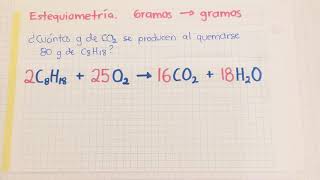 Estequiometría. Gramos → gramos
¿Cuántos g de CO₂ se producen al quemarse
80 g de C₈H₁₈?
2C₈H₁₈ + 25O₂ → 16CO₂ + 18H₂O